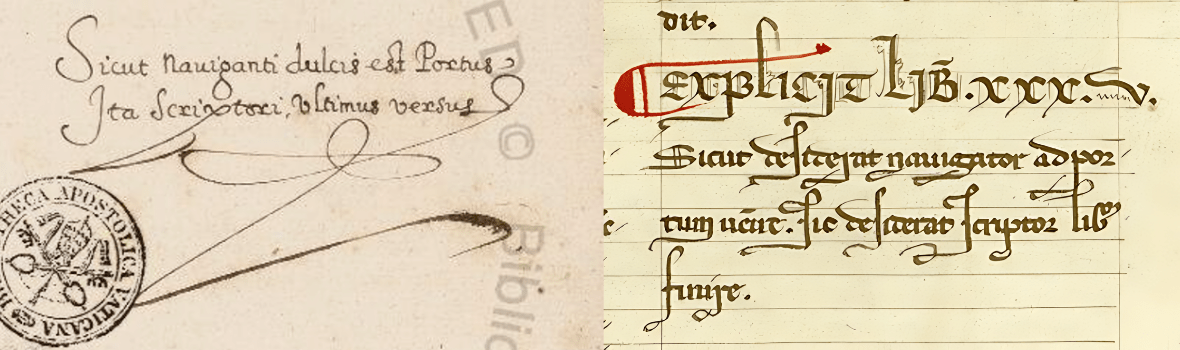 Sicut Nauiganti dulcis est Portus
Ita Scriptori, Vltimus versus
BIBLIOTHECA APOSTOLICA VATICANA
ED © Biblio
dit.
Explicit lib̄. xxx.v.
Sicut desiderat nauigator ad por
tum uēire. sic desiderat scriptor lib
finire.